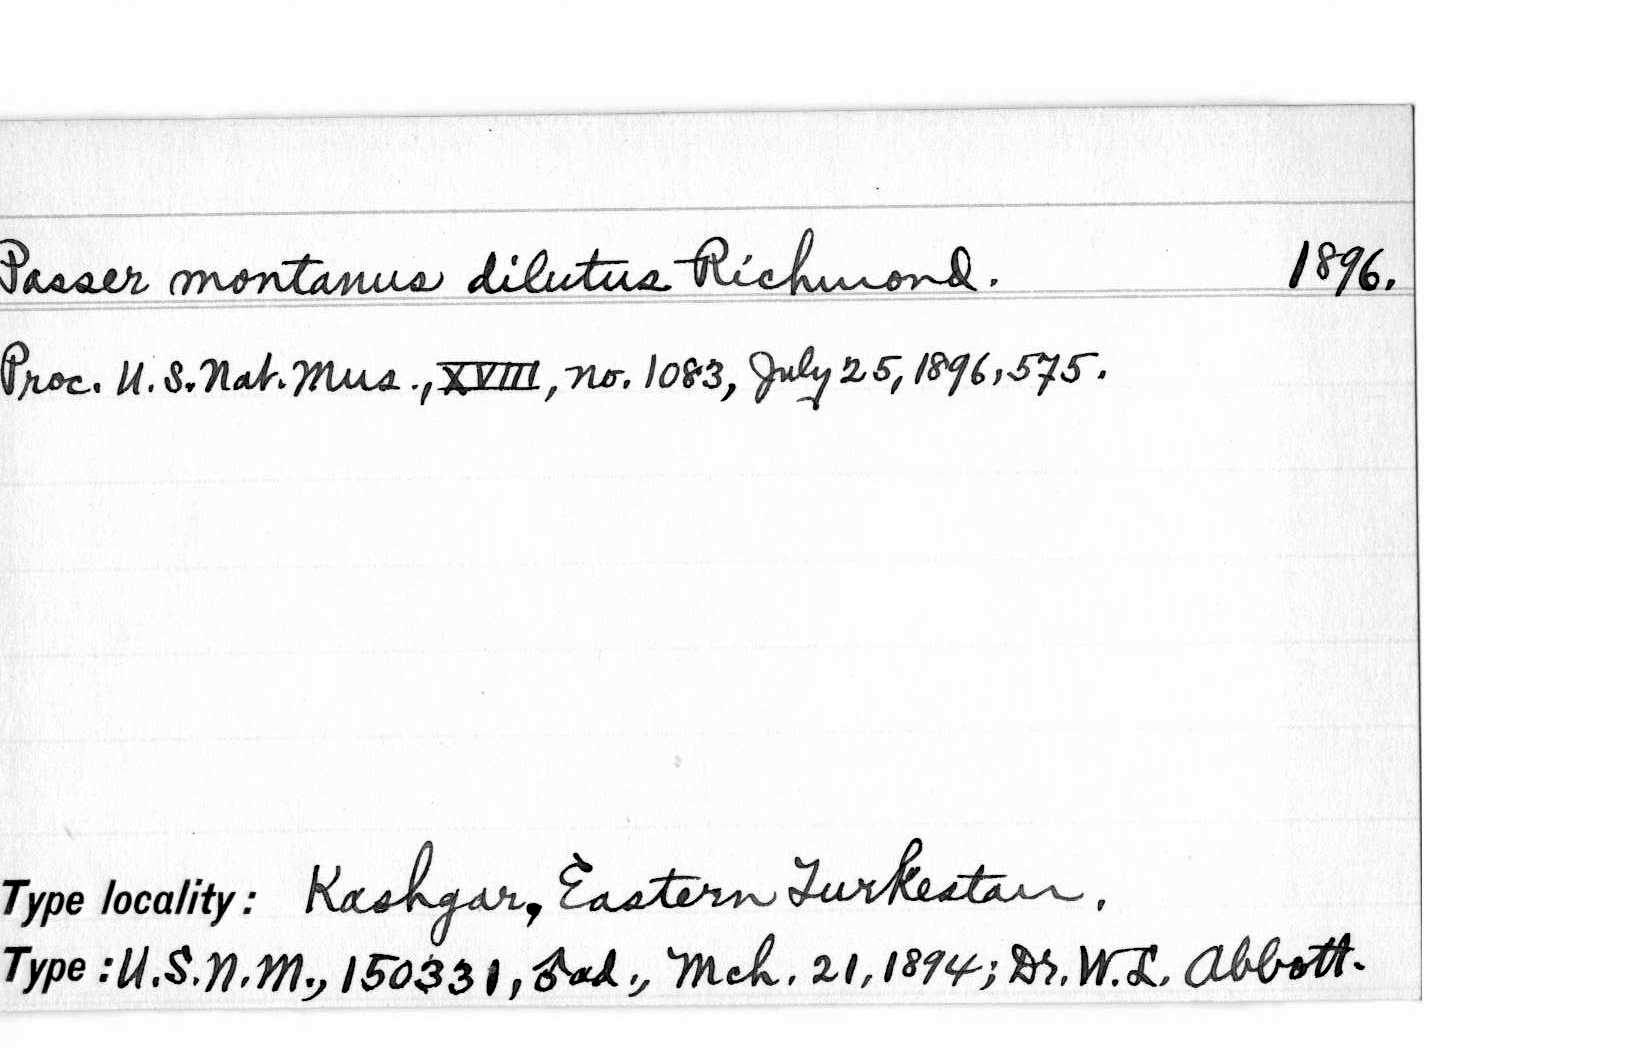 Passer montanus dilutus Richmond. 1896.
Proc. U.S. Nat. Mus., XVIII, no. 1083, July 25, 1896, 575.
Type locality: Kashgar, Eastern Turkestan.
Type: U.S.N.M., 150331, ♂ ad., Mch. 21, 1894; Dr. W.L. Abbott.